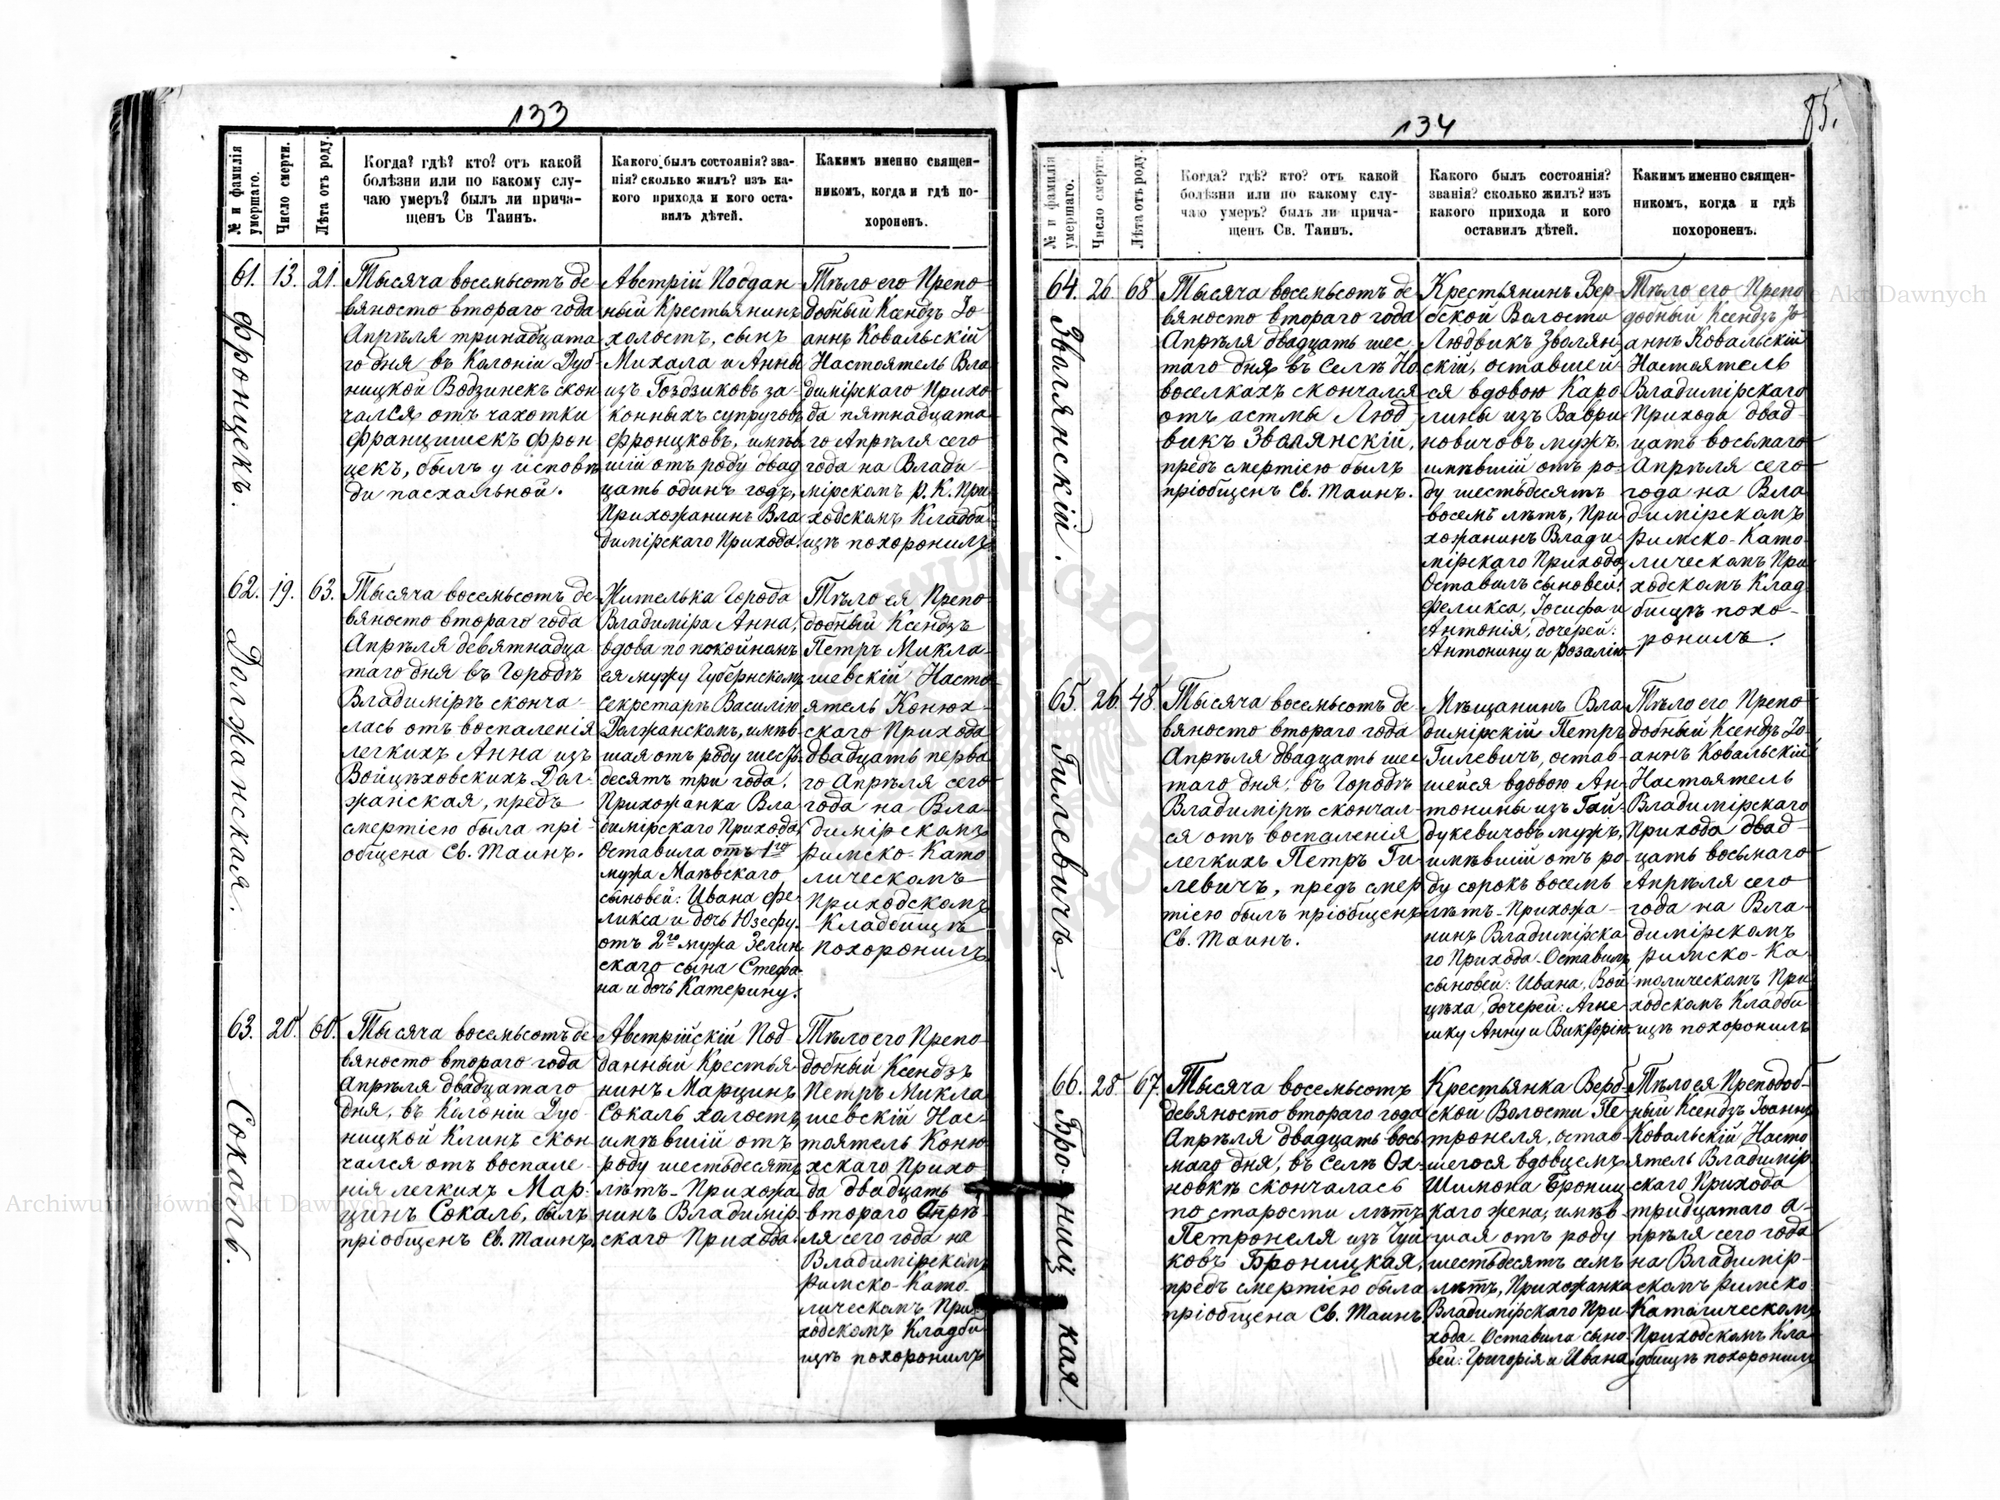 133
№ и фамилія умершаго.
Число смерти.
Лѣта отъ роду.
Когда? гдѣ? кто? отъ какой
болѣзни или по какому слу-
чаю умеръ? былъ ли прича-
щенъ Св Таинъ.
Какого былъ состоянія? зва-
нія? сколько жилъ? изъ ка-
кого прихода и кого оста-
вилъ дѣтей.
Какимъ именно священ-
никомъ, когда и гдѣ по-
хороненъ.
61.
Фронцекъ.
13.
21.
Тысяча восемьсотъ де
вяносто втораго года
Апрѣля тринадцата
го дня въ Колоніи Дуб
ницкой Водзинекъ скон
чался отъ чахотки
Францишекъ Фрон
цекъ, былъ у исповѣ
ди пасхальной.
Австрій Поддан
ный Крестьянинъ
холостъ, сынъ
Михала и Анны
изъ Гвоздзиковъ за-
конныхъ супруговъ
Фронцковъ, имѣв
шій отъ роду двад
цать одинъ годъ,
Прихожанинъ Вла
димірскаго Прихода.
Тѣло его Препо-
добный Ксендзъ Іо
аннъ Ковальскій
Настоятель Вла
димірскаго Прихо
да пятнадцата
го Апрѣля сего
года на Влади-
мірскомъ Р. К. При
ходскомъ Кладби
щѣ похоронилъ
62.
Должанская.
19.
63.
Тысяча восемьсотъ де
вяносто втораго года
Апрѣля девятнадца
таго дня въ Городѣ
Владимірѣ сконча-
лась отъ воспаленія
легкихъ Анна изъ
Войцѣховскихъ Дол-
жанская, предъ
смертію была прі-
общена Св. Таинъ.
Жителька Города
Владиміра Анна,
вдова по покойномъ
ея мужу Губернскомъ
секретарѣ Василію
Должанскомъ, имѣв-
шая отъ роду шесть
десятъ три года,
Прихожанка Вла
димірскаго Прихода
Оставила отъ 1го
мужа Маѣвскаго
сыновей: Ивана Фе
ликса и дочь Юзефу.
отъ 2го мужа Зелин
скаго сына Стефа
на и дочь Катерину.
Тѣло ея Препо
добный Ксендзъ
Петръ Микла-
шевскій Насто
ятель Конюх-
скаго Прихода
двадцать перва
го Апрѣля сего
года на Вла-
димірскомъ
Римско-Като
лическомъ
Приходскомъ
Кладбищѣ
похоронилъ
63.
Сокалъ.
20.
60.
Тысяча восемьсотъ де
вяносто втораго года
Апрѣля двадцатаго
дня, въ Колоніи Дуб
ницкой Клинъ скон-
чался отъ воспале-
нія легкихъ Мар-
цинъ Сокалъ, былъ
пріобщенъ Св. Таинъ.
Австрійскій Под
данный Крестья-
нинъ Марцинъ
Сокалъ холостъ,
имѣвшій отъ
роду шестьдесятъ
лѣтъ-Прихожа
нинъ Владимір
скаго Прихода.
Тѣло его Препо
добный Ксендзъ
Петръ Микла
шевскій Нас-
тоятель Коню
хскаго Прихо
да двадцать
втораго Апрѣ-
ля сего года на
Владимірскомъ
Римско-Като-
лическомъ При-
ходскомъ Кладби-
щѣ похоронилъ
134
85.
№ и фамилія умершаго.
Число смерти.
Лѣта отъ роду.
Когда? гдѣ? кто? отъ какой
болѣзни или по какому слу-
чаю умеръ? былъ ли прича-
щенъ Св. Таинъ.
Какого былъ состоянія?
званія? сколько жилъ? изъ
какого прихода и кого
оставилъ дѣтей.
Какимъ именно священ-
никомъ, когда и гдѣ
похороненъ.
64.
Зволянскій.
26
68
Тысяча восемьсотъ де
вяносто втораго года
Апрѣля двадцать шес
таго дня въ Селѣ Но
воселкахъ скончался
отъ астмы Люд
викъ Зволянскій,
предъ смертію былъ
пріобщенъ Св. Таинъ.
Крестьянинъ Вер
бской Волости
Людвикъ Зволян
скій, оставшей
ся вдовою Каро
лины изъ Ваври
новичовъ мужъ.
имѣвшій отъ ро-
ду шестьдесятъ
восемь лѣтъ, При
хожанинъ Влади-
мірскаго Прихода
Оставилъ сыновей:
Феликса, Іосифа и
Антонія, дочерей:
Антонину и Розалію
Тѣло его Препо
добный Ксендзъ Іо-
аннъ Ковальскій
Настоятель
Владимірскаго
Прихода двад-
цать восьмаго
Апрѣля сего
года на Вла
димірскомъ
Римско-Като-
лическомъ При
ходскомъ Клад
бищѣ похо-
ронилъ.
65.
Гилевичъ.
26.
48.
Тысяча восемьсотъ де
вяносто втораго года
Апрѣля двадцать шес
таго дня, въ Городѣ
Владимірѣ скончал-
ся отъ воспаленія
легкихъ Петръ Ги-
левичъ, предъ смер
тію былъ пріобщенъ
Св. Таинъ.
Мѣщанинъ Вла
димірскій Петръ
Гилевичъ, остав-
шейся вдовою Ан-
тонины изъ Гай-
дукевичовъ мужъ,
имѣвшій отъ ро
ду сорокъ восемь
лѣтъ-Прихожа-
нинъ Владимірска
го Прихода. Оставилъ
сыновей: Ивана, Вой
цѣха, дочерей: Агне
шку Анну и Викторію
Тѣло его Препо-
добный Ксендзъ Іо-
аннъ Ковальскій
Настоятель
Владимірскаго
Прихода двад-
цать восьмаго
Апрѣля сего
года на Вла-
димірскомъ
Римско-Ка-
толическомъ При
ходскомъ Кладби
щѣ похоронилъ
66.
Броницкая.
28
67.
Тысяча восемьсотъ
девяносто втораго года
Апрѣля двадцать вось
маго дня, въ Селѣ Ох-
новкѣ скончалась
по старости лѣтъ
Петронеля изъ Гуй
ковъ Броницкая,
предъ смертію была
пріобщена Св. Таинъ.
Крестьянка Верб
ской Волости Пе
тронеля, остав-
шегося вдовцемъ
Шимона Брониц
каго жена, имѣв
шая отъ роду
шестьдесятъ семь
лѣтъ, Прихожанка
Владимірскаго При
хода-Оставила сыно-
вей: Григорія и Ивана
Тѣло ея Преподоб-
ный Ксендзъ Іоаннъ
Ковальскій Насто
ятель Владимір
скаго Прихода
тридцатаго А-
прѣля сего года
на Владимір-
скомъ Римско
Католическомъ
Приходскомъ Кла
дбищѣ похоронилъ
Archiwum Główne Akt Dawnych